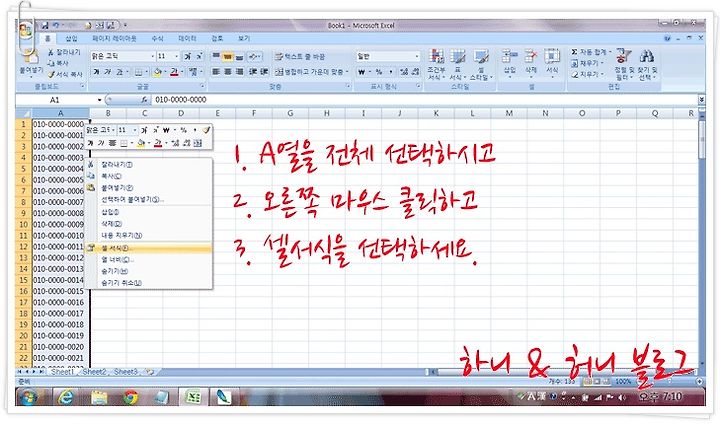 Book1 - Microsoft Excel
홈 삽입 페이지 레이아웃 수식 데이터 검토 보기
붙여넣기
잘라내기
복사
서식 복사
클립보드
맑은 고딕 11
글꼴
텍스트 줄 바꿈
병합하고 가운데 맞춤
맞춤
일반
표시 형식
조건부 서식
표 서식
셀 스타일
스타일
삽입 삭제 서식
셀
자동 합계
채우기
지우기
정렬 및 필터
찾기 및 선택
편집
A1 010-0000-0000
A B C D E F G H I J K L M N O P Q R
1 010-0000-0000
2 010-0000-0001
3 010-0000-0002
4 010-0000-0003
5 010-0000-0004
6 010-0000-0005
7 010-0000-0006
8 010-0000-0007
9 010-0000-0008
10 010-0000-0009
11 010-0000-0010
12 010-0000-0011
13 010-0000-0012
14 010-0000-0013
15 010-0000-0014
16 010-0000-0015
17 010-0000-0016
18 010-0000-0017
19 010-0000-0018
20 010-0000-0019
21 010-0000-0020
22 010-0000-0021
맑은 고딕 11
잘라내기(T)
복사(C)
붙여넣기(P)
선택하여 붙여넣기(S)...
삽입(I)
삭제(D)
내용 지우기(N)
셀 서식(F)...
열 너비(C)...
숨기기(H)
숨기기 취소(U)
1. A열을 전체 선택하시고
2. 오른쪽 마우스 클릭하고
3. 셀서식을 선택하세요.
하니 & 허니 블로그
Sheet1 Sheet2 Sheet3
준비
개수: 135
100%
A 漢
오후 7:10